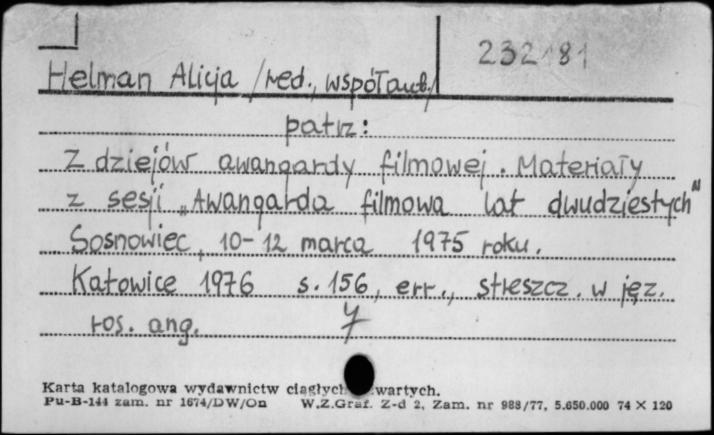 232181
Helman Alicja /red., współaut./
patrz:
Z dziejów awangardy filmowej. Materiały
z sesji „Awangarda filmowa lat dwudziestych"
Sosnowiec, 10-12 marca 1975 roku.
Katowice 1976 s. 156, err., streszcz. w jęz.
ros. ang.
Karta katalogowa wydawnictw ciągłych wartych.
Pu-B-144 zam. nr 1674/DW/On W.Z.Graf. Z-d 2, Zam. nr 988/77, 5.650.000 74 X 120